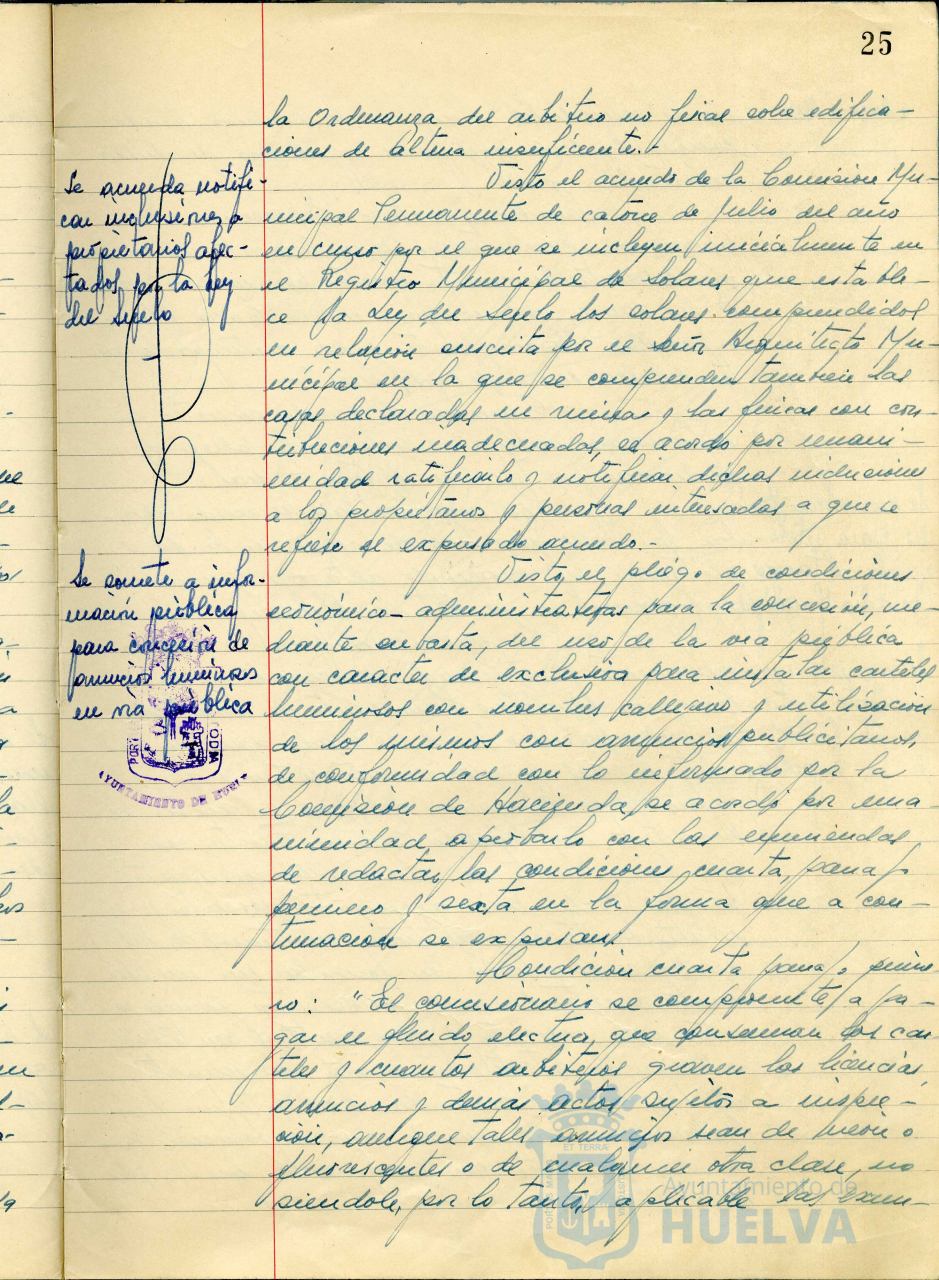 25
la Ordenanza del arbitrio no fiscal sobre edifica-
ciones de altura insuficiente.-
Se acuerda notifi-
car inclusiones a
propietarios afec-
tados por la Ley
del Suelo
Visto el acuerdo de la Comisión Mu-
nicipal Permanente de catorce de Julio del año
en curso por el que se incluyen inicialmente en
el Registro Municipal de Solares que estable-
ce la Ley del Suelo los solares comprendidos
en relación suscrita por el Señor Arquitecto Mu-
nicipal en la que se comprenden también las
casas declaradas en ruinas y las fincas con cons-
trucciones inadecuadas, se acordó por unani-
midad ratificarlo y notificar dichas inclusiones
a los propietarios y personas interesadas a que se
refiere el expresado acuerdo.-
Se somete a infor-
mación pública
para concesión de
anuncios luminosos
en vía pública
Visto el pliego de condiciones
económico-administrativas para la concesión, me-
diante subasta, del uso de la vía pública
con caracter de exclusiva para instalar carteles
luminosos con nombres callejero y utilización
de los mismos con anuncios publicitarios,
de conformidad con lo informado por la
Comisión de Hacienda, se acordó por una-
nimidad, aprobarlo con las enmiendas
de redactar las condiciones cuarta, parraf.
primero y sexta en la forma que a con-
tinuación se expresan:
Condición cuarta parraf. prime-
ro: "El concesionario se compromete a pa-
gar el fluido electrico, que consuman los car
teles y cuantos arbitrios graven las licencias
anuncios y demás actos sujetos a inspec-
ción, aunque tales anuncios sean de neón o
fluorescentes o de cualquier otra clase, no
siendole, por lo tanto, aplicable las exen-
PORT
CODIA
AYUNTAMIENTO DE HUELVA
ET TERRA
Ayuntamiento de
HUELVA